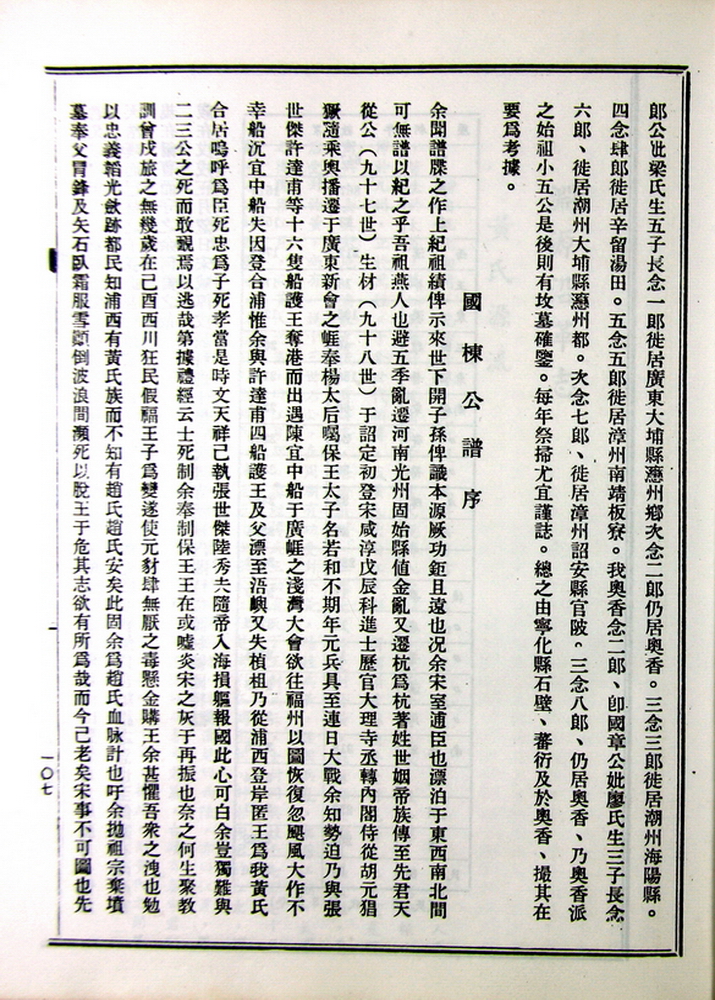 郎公妣梁氏生五子長念一郎徙居廣東大埔縣灋州鄉次念二郎仍居奧香。三念三郎徙居潮州海陽縣。
四念肆郎徙居辛留湯田。五念五郎徙居漳州南靖板寮。我奧香念二郎、卽國章公妣廖氏生三子長念
六郎、徙居潮州大埔縣灋州都。次念七郎、徙居漳州詔安縣官陂。三念八郎、仍居奧香、乃奧香派
之始祖小五公是後則有坟墓確鑒。每年祭掃尤宜謹誌。總之由寧化縣石壁、蕃衍及於奧香、撮其在
要爲考據。
國棟公譜序
余聞譜牒之作上紀祖績俾示來世下開子孫俾識本源厥功鉅且遠也况余宋室逋臣也漂泊于東西南北間
可無譜以紀之乎吾祖燕人也避五季亂遷河南光州固始縣値金亂又遷杭爲杭著姓世姻帝族傳至先君天
從公（九十七世）生材（九十八世）于詔定初登宋咸淳戊辰科進士歷官大理寺丞轉內閣侍從胡元猖
獗隨乘輿播遷于廣東新會之崕奉楊太后囑保王太子名若和不期年元兵具至連日大戰余知勢迫乃與張
世傑許達甫等十六隻船護王奪港而出遇陳宜中船于廣崕之淺灣大會欲往福州以圖恢復忽颶風大作不
幸船沉宜中船失因登合浦惟余與許達甫四船護王及父漂至浯嶼又失楨粗乃從浦西登岸匿王爲我黃氏
合居嗚呼爲臣死忠爲子死孝當是時文天祥己執張世傑陸秀夫隨帝入海損軀報國此心可白余豈獨難與
二三公之死而敢覥焉以逃哉第據禮經云士死制余奉制保王王在或噓炎宋之灰于再振也奈之何生聚教
訓曾戍旅之無幾歲在己酉西川狂民假福王子爲變遂使元豺肆無厭之毒懸金購王余甚懼吾衆之洩也勉
以忠義韜光斂跡都民知浦西有黃氏族而不知有趙氏趙氏安矣此固余爲趙氏血咏計也吁余拋祖宗棄墳
墓奉父冒鋒及矢石臥霜服雪顚倒波浪間瀕死以脫王于危其志欲有所爲哉而今己老矣宋事不可圖也先
一〇七